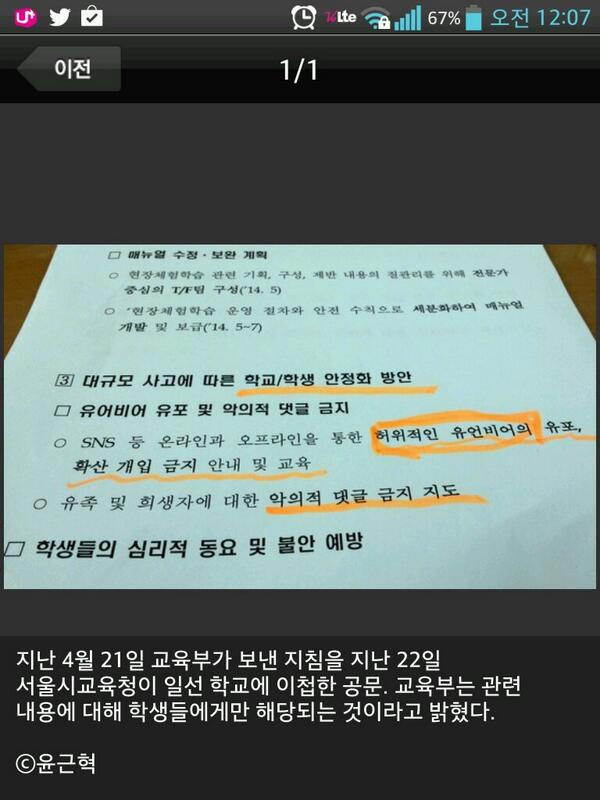 U+ LTE 67% 오전 12:07
이전 1/1
□ 매뉴얼 수정·보완 계획
○ 현장체험학습 관련 기획, 구성, 제반 내용의 질관리를 위해 전문가
중심의 T/F팀 구성('14. 5)
○ '현장체험학습 운영 절차와 안전 수칙으로 세분화하여 매뉴얼
개발 및 보급('14. 5~7)
3 대규모 사고에 따른 학교/학생 안정화 방안
□ 유어비어 유포 및 악의적 댓글 금지
○ SNS 등 온라인과 오프라인을 통한 허위적인 유언비어의 유포,
확산 개입 금지 안내 및 교육
○ 유족 및 희생자에 대한 악의적 댓글 금지 지도
□ 학생들의 심리적 동요 및 불안 예방
지난 4월 21일 교육부가 보낸 지침을 지난 22일
서울시교육청이 일선 학교에 이첩한 공문. 교육부는 관련
내용에 대해 학생들에게만 해당되는 것이라고 밝혔다.
ⓒ윤근혁